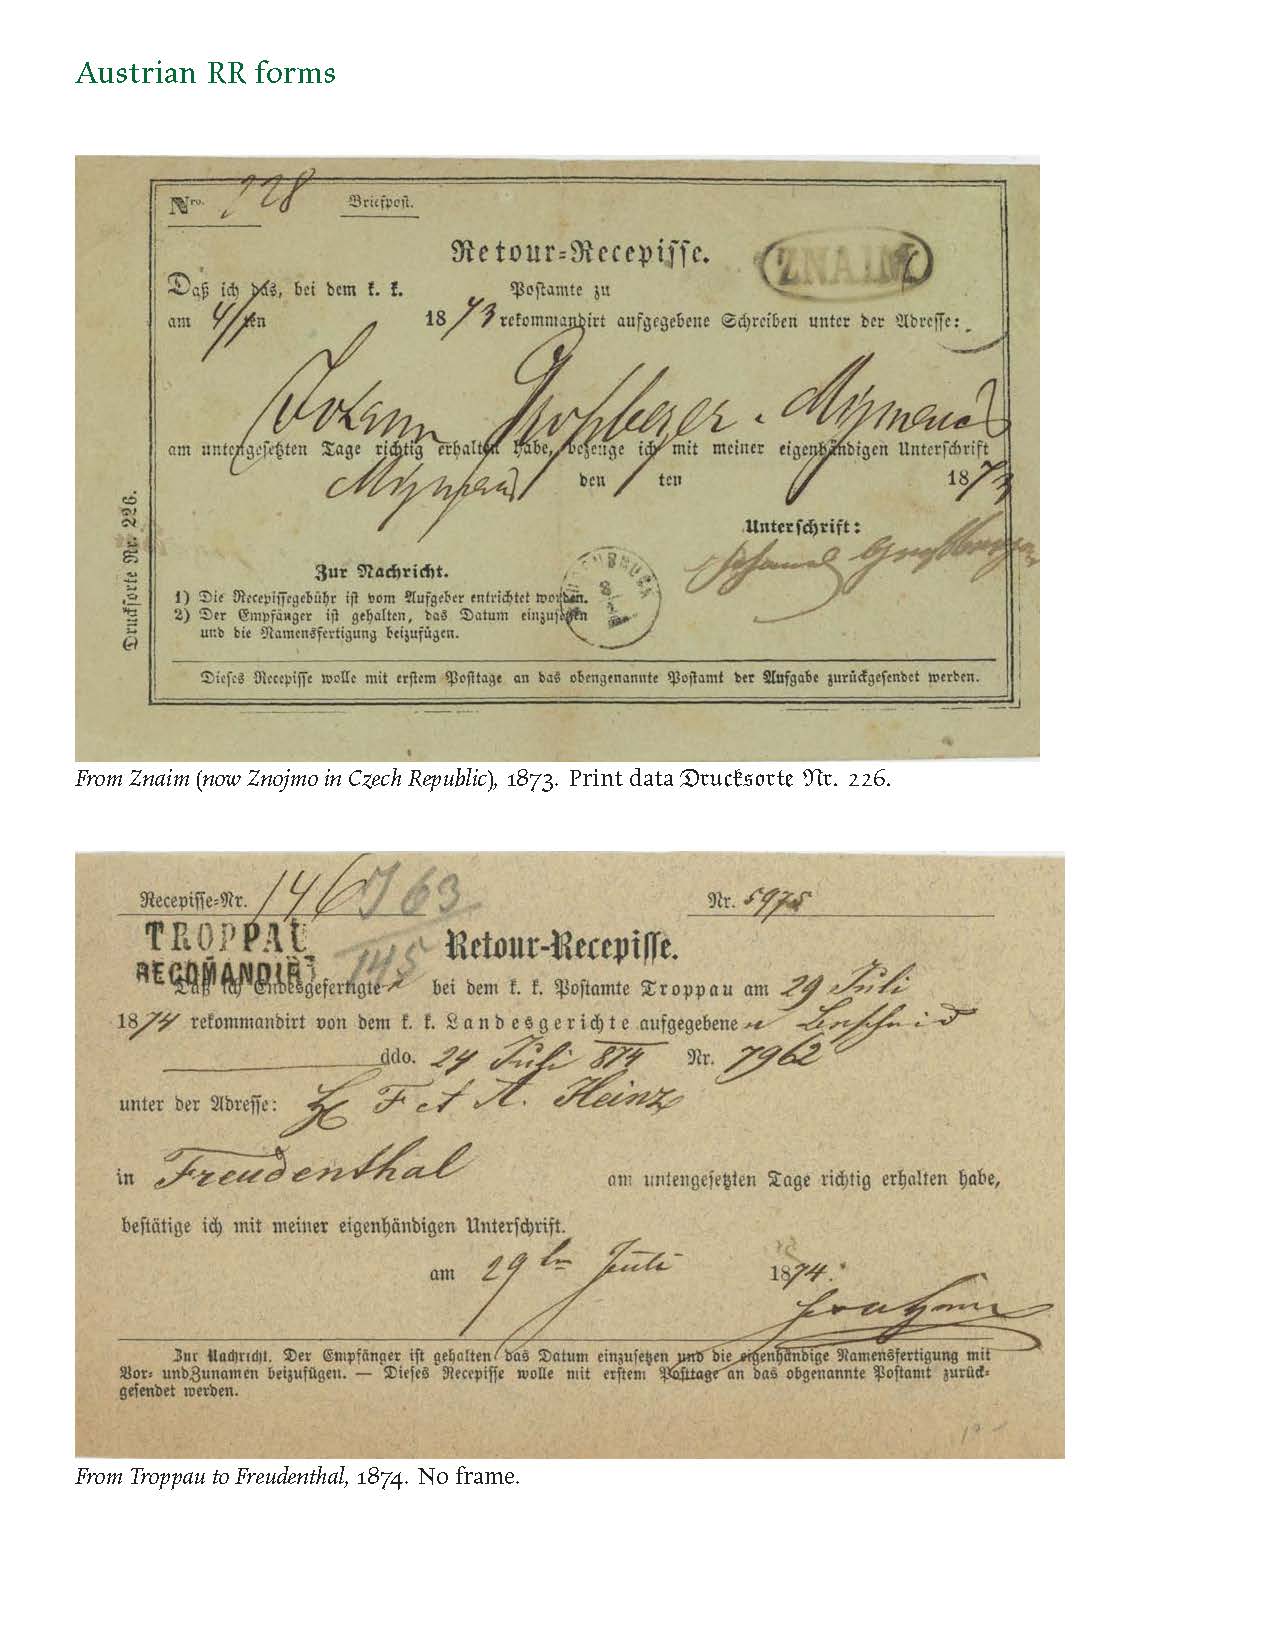 Austrian RR forms
Nro. 228 Briefpost.
Retour=Recepisse. ZNAIM
Daß ich das, bei dem k. k. Postamte zu
am 4/1 ten 1873 rekommandirt aufgegebene Schreiben unter der Adresse:
Johann
am untengesetzten Tage richtig erhalten habe, bezeuge ich mit meiner eigenhändigen Unterschrift
den ten 1873
Unterschrift:
Zur Nachricht.
1) Die Recepissegebühr ist vom Aufgeber entrichtet worden.
2) Der Empfänger ist gehalten, das Datum einzusetzen
und die Namensfertigung beizufügen.
Dieses Recepisse wolle mit erstem Posttage an das obengenannte Postamt der Aufgabe zurückgesendet werden.
Drucksorte Nr. 226.
From Znaim (now Znojmo in Czech Republic), 1873. Print data Drucksorte Nr. 226.
Recepisse=Nr. 146 763 Nr. 5975
TROPPAU 145
Retour-Recepisse.
RECOMANDIRT
Daß ich Endesgefertigte bei dem k. k. Postamte Troppau am 29 Juli
1874 rekommandirt von dem k. k. Landesgerichte aufgegebenen
ddo. 24 Juli 874 Nr. 7962
unter der Adresse: F et A. Heinz
in Freudenthal am untengesetzten Tage richtig erhalten habe,
bestätige ich mit meiner eigenhändigen Unterschrift.
am 29 Juli 1874.
Zur Nachricht. Der Empfänger ist gehalten das Datum einzusetzen und die eigenhändige Namensfertigung mit
Vor= und Zunamen beizufügen. — Dieses Recepisse wolle mit erstem Posttage an das obgenannte Postamt zurück=
gesendet werden.
From Troppau to Freudenthal, 1874. No frame.